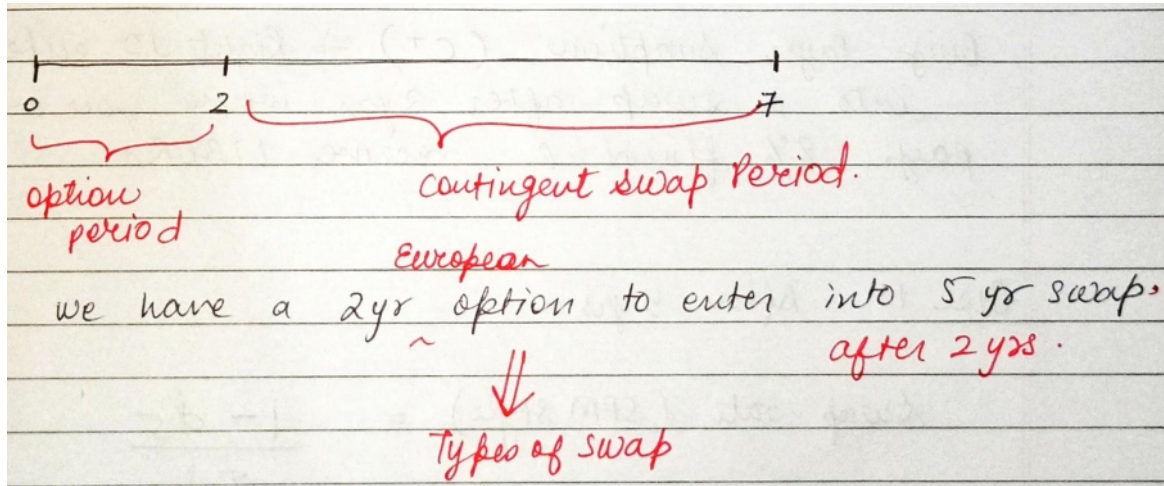 0 2 7
option Contingent swap Period.
period
European
we have a 2yr option to enter into 5 yr swap.
^ after 2 yrs.
⇓
Types of swap